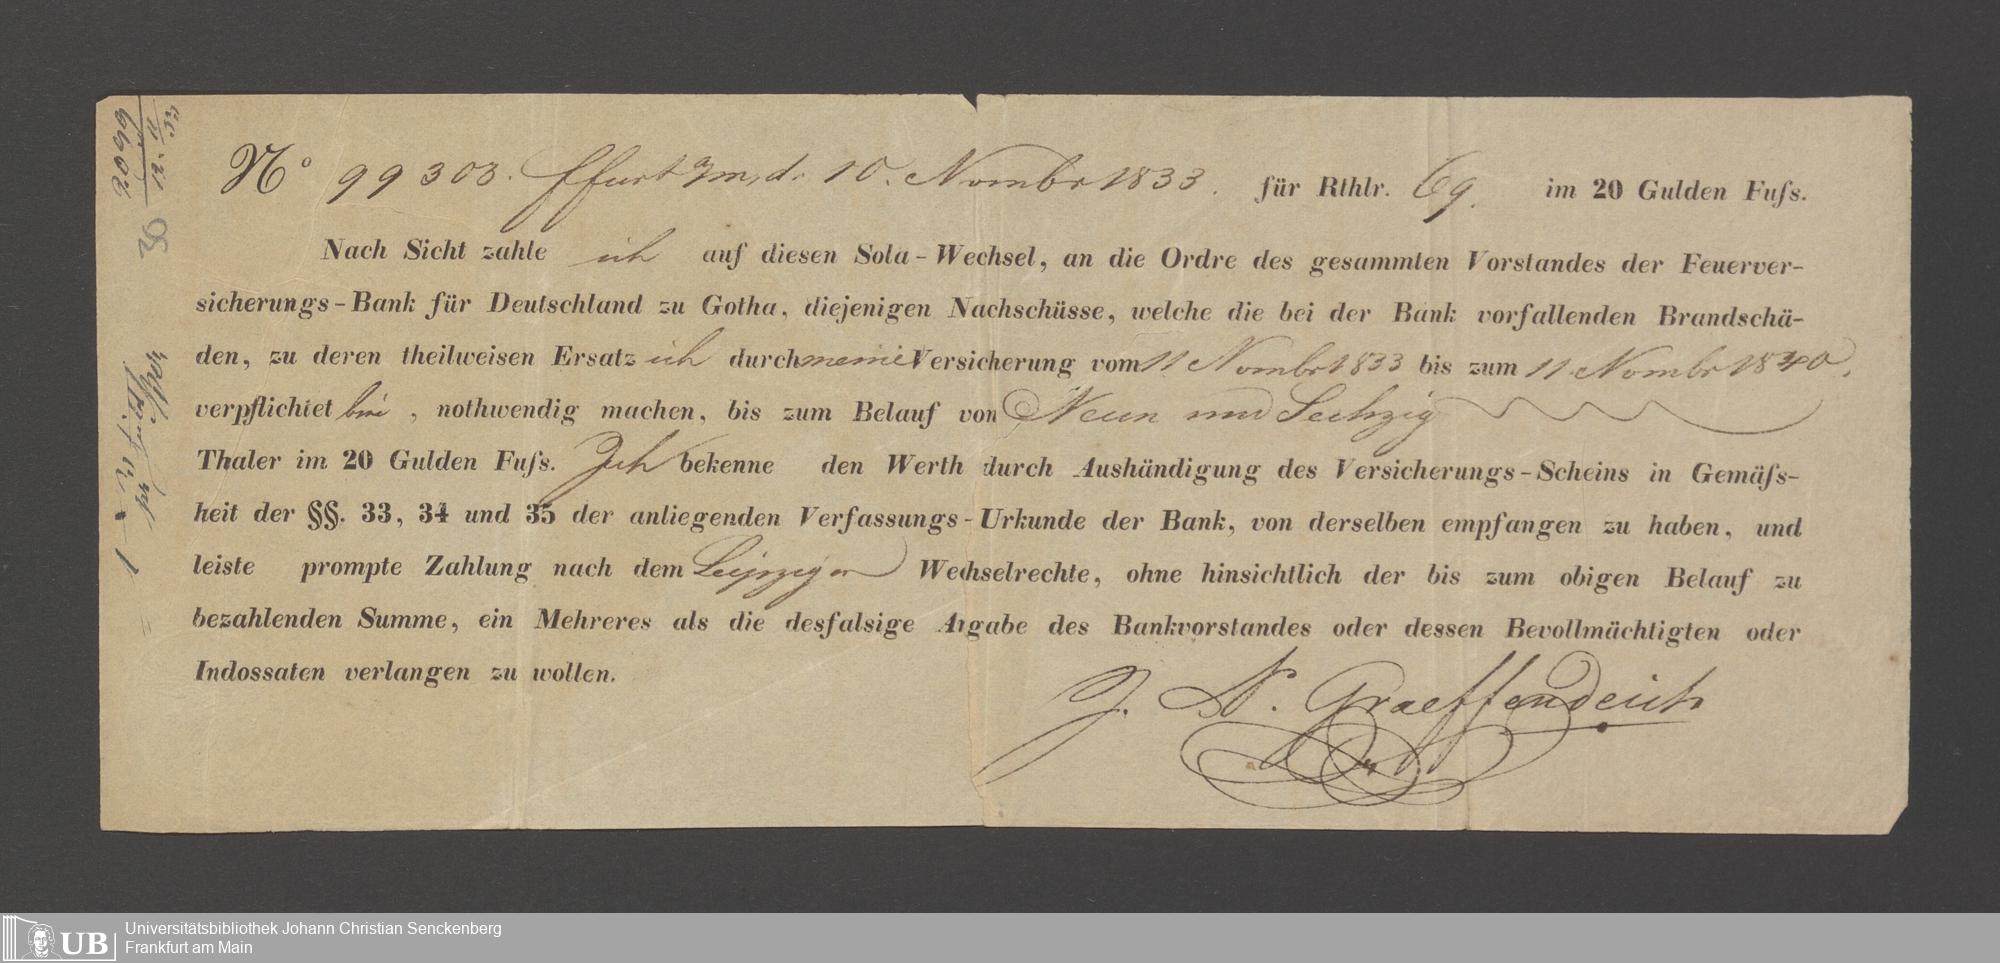 No 99303. Ffurt a/m, d. 10. Novembr 1833. für Rthlr. 69. im 20 Gulden Fuſs.
Nach Sicht zahle ich auf diesen Sola-Wechsel, an die Ordre des gesammten Vorstandes der Feuerver-
sicherungs-Bank für Deutschland zu Gotha, diejenigen Nachschüsse, welche die bei der Bank vorfallenden Brandschä-
den, zu deren theilweisen Ersatz ich durch meine Versicherung vom 11 Novembr 1833 bis zum 11 Novembr 1840.
verpflichtet bin, nothwendig machen, bis zum Belauf von Neun und Sechzig
Thaler im 20 Gulden Fuſs. Ich bekenne den Werth durch Aushändigung des Versicherungs-Scheins in Gemäſs-
heit der §§. 33, 34 und 35 der anliegenden Verfassungs-Urkunde der Bank, von derselben empfangen zu haben, und
leiste prompte Zahlung nach dem Leipziger Wechselrechte, ohne hinsichtlich der bis zum obigen Belauf zu
bezahlenden Summe, ein Mehreres als die desfalsige Angabe des Bankvorstandes oder dessen Bevollmächtigten oder
Indossaten verlangen zu wollen.
J. N. Graeffendeich
2099
36
UB
Universitätsbibliothek Johann Christian Senckenberg
Frankfurt am Main